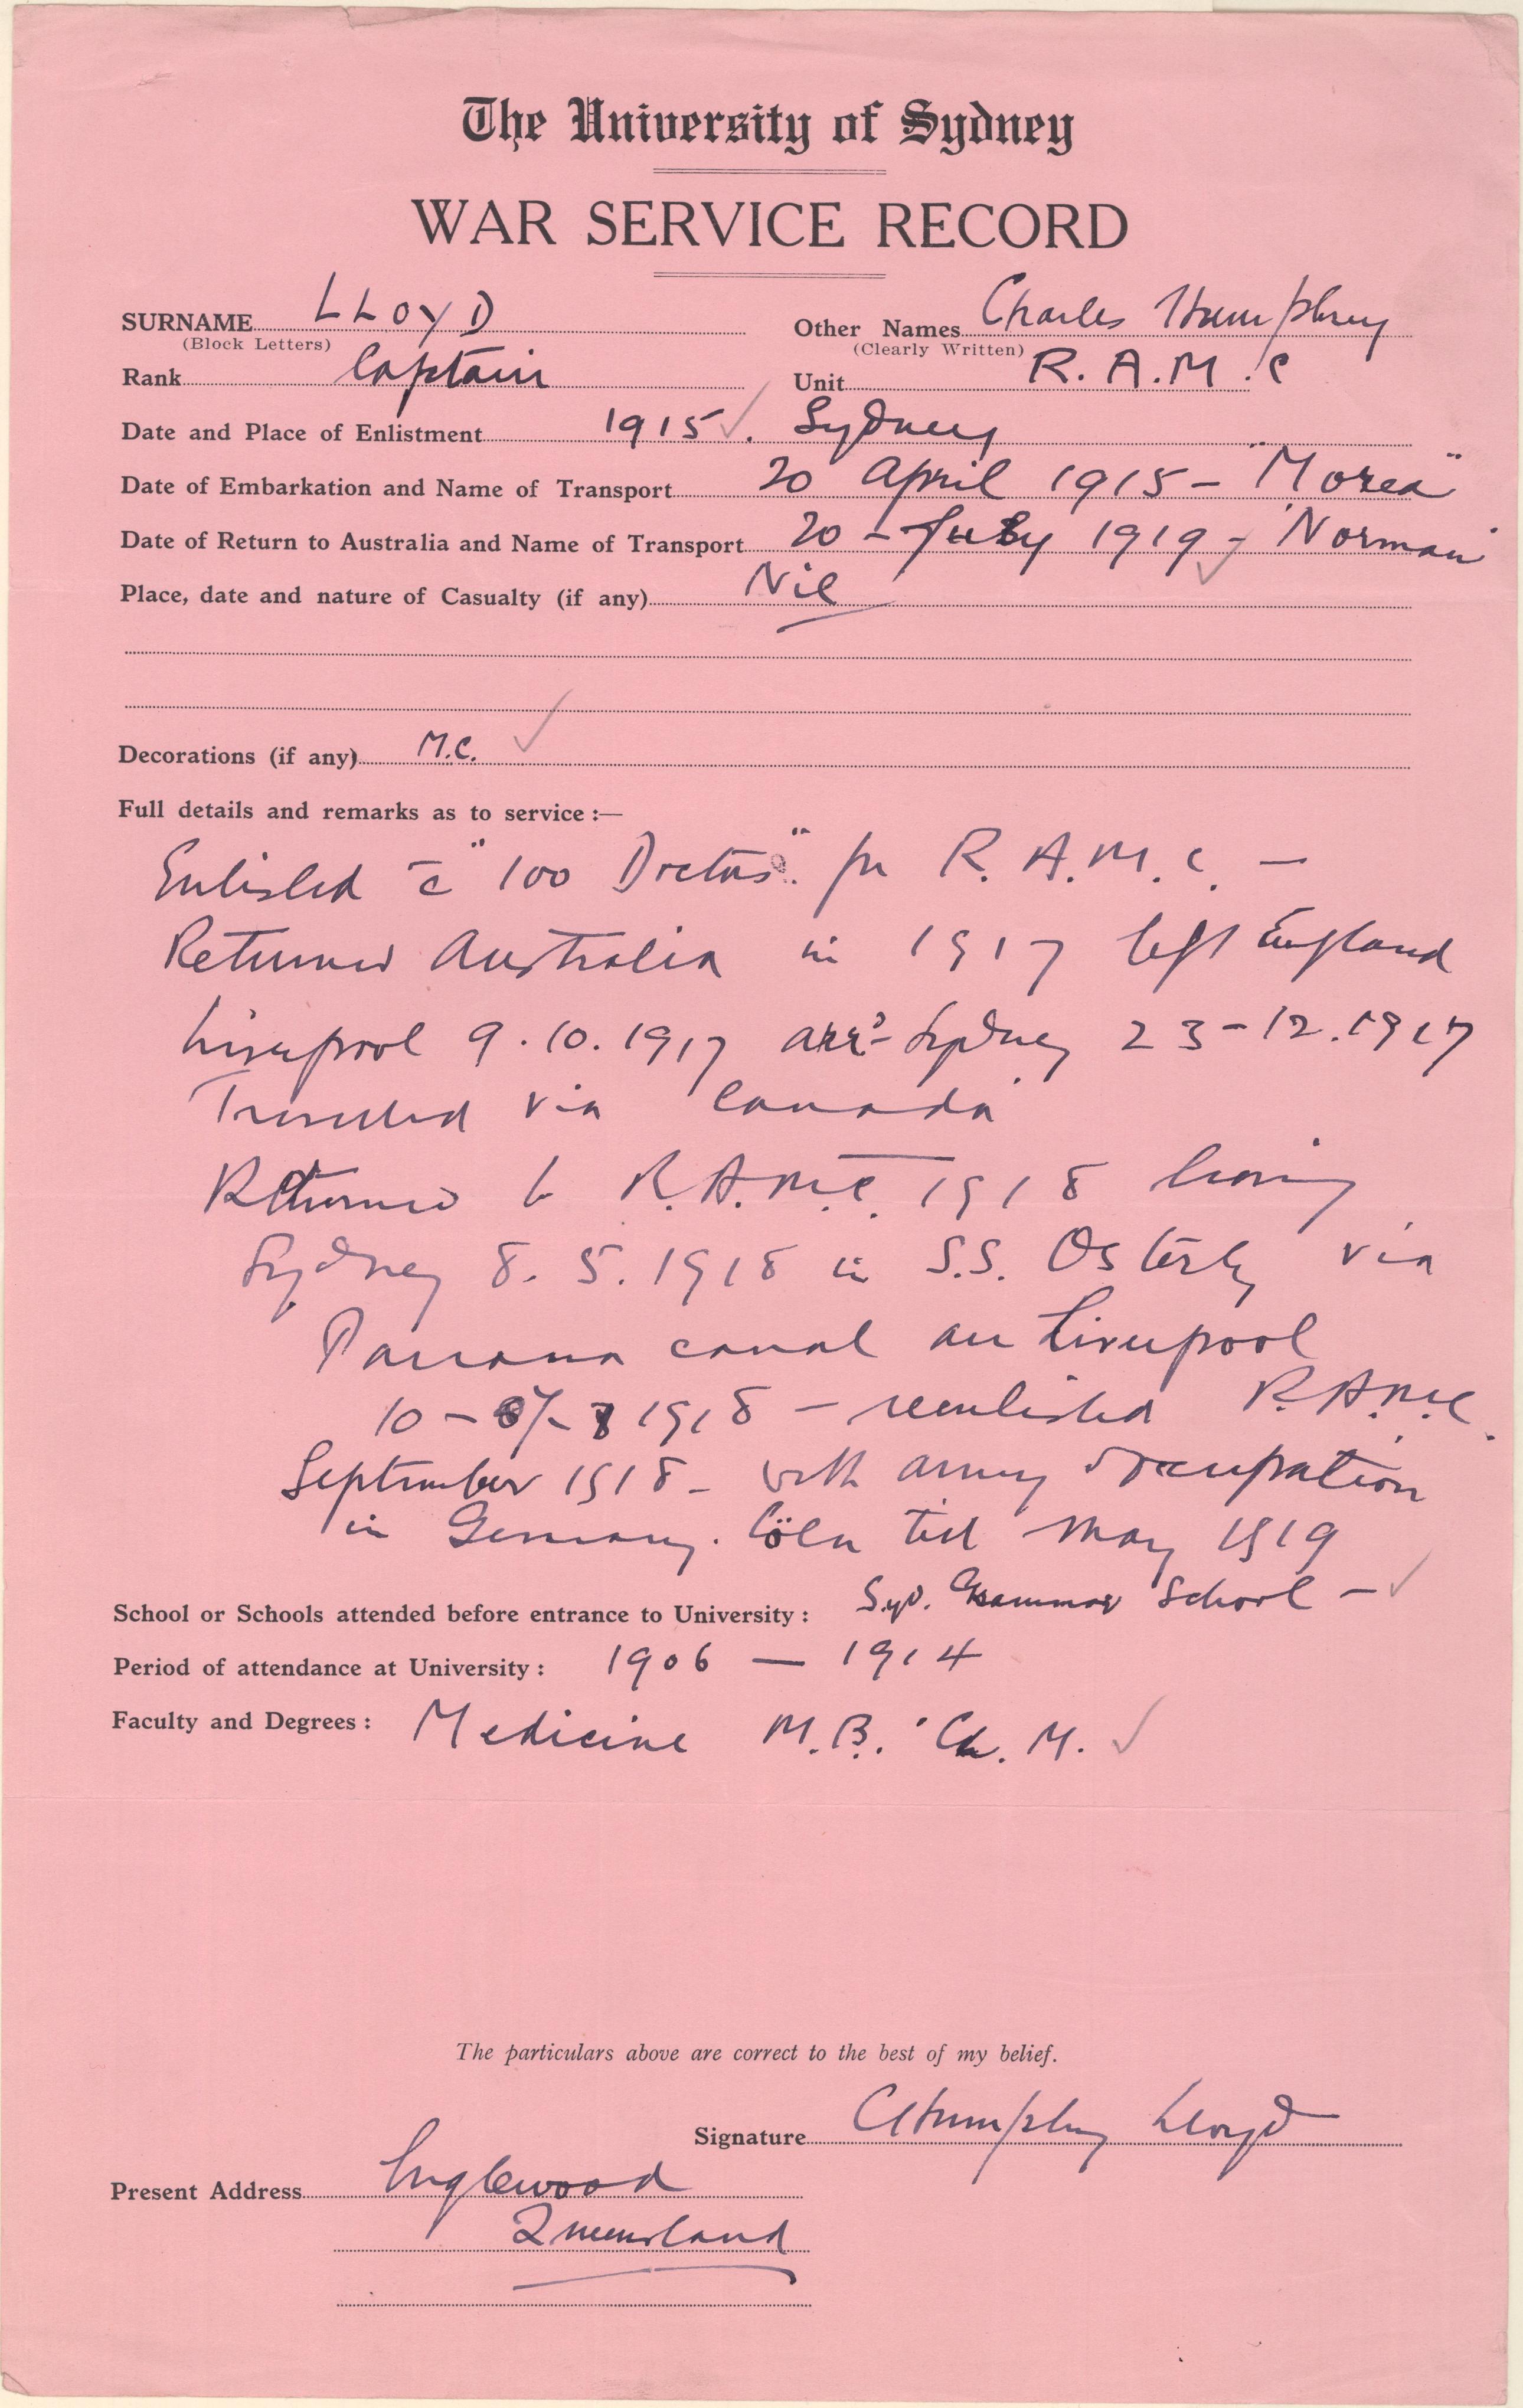 The University of Sydney
WAR SERVICE RECORD
SURNAME LLOYD Other Names Charles Humphrey
(Block Letters) (Clearly Written)
Rank Captain Unit R.A.M.C
Date and Place of Enlistment 1915. Sydney
Date of Embarkation and Name of Transport 20 April 1915 - "Morea"
Date of Return to Australia and Name of Transport 20 - July 1919 - Norman
Place, date and nature of Casualty (if any) Nil
Decorations (if any) M.C.
Full details and remarks as to service :—
Enlisted c̄ "100 Doctors" for R.A.M.C. —
Returned Australia in 1917 left England
Liverpool 9.10.1917 arrd Sydney 23-12.1917
Travelled via Canada
Returned to R.A.M.C. 1918 leaving
Sydney 8.5.1918 in S.S. Osterly via
Panama canal arr Liverpool
10 - 1918 - reenlisted R.A.M.C.
September 1918 - with army occupation
in Germany. Cöln till May 1919
School or Schools attended before entrance to University : Syd. Grammar School -
Period of attendance at University : 1906 — 1914
Faculty and Degrees : Medicine M.B. Ch. M.
The particulars above are correct to the best of my belief.
Signature CHumphrey Lloyd
Present Address Inglewood
Queensland